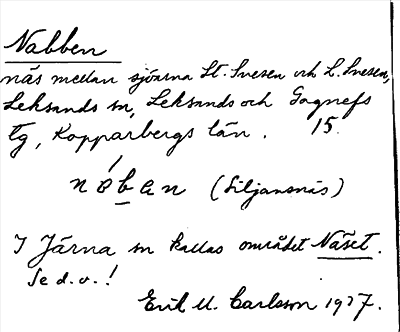 Nabben
näs mellan sjöarna St. Snesen och L. Snesen,
Leksands sn, Leksands och Gagnefs
tg, Kopparbergs län. 15.
(Siljansnäs)
I Järna sn kallas området Näset.
Se d. o.!
Erik M. Carlsson 1927.